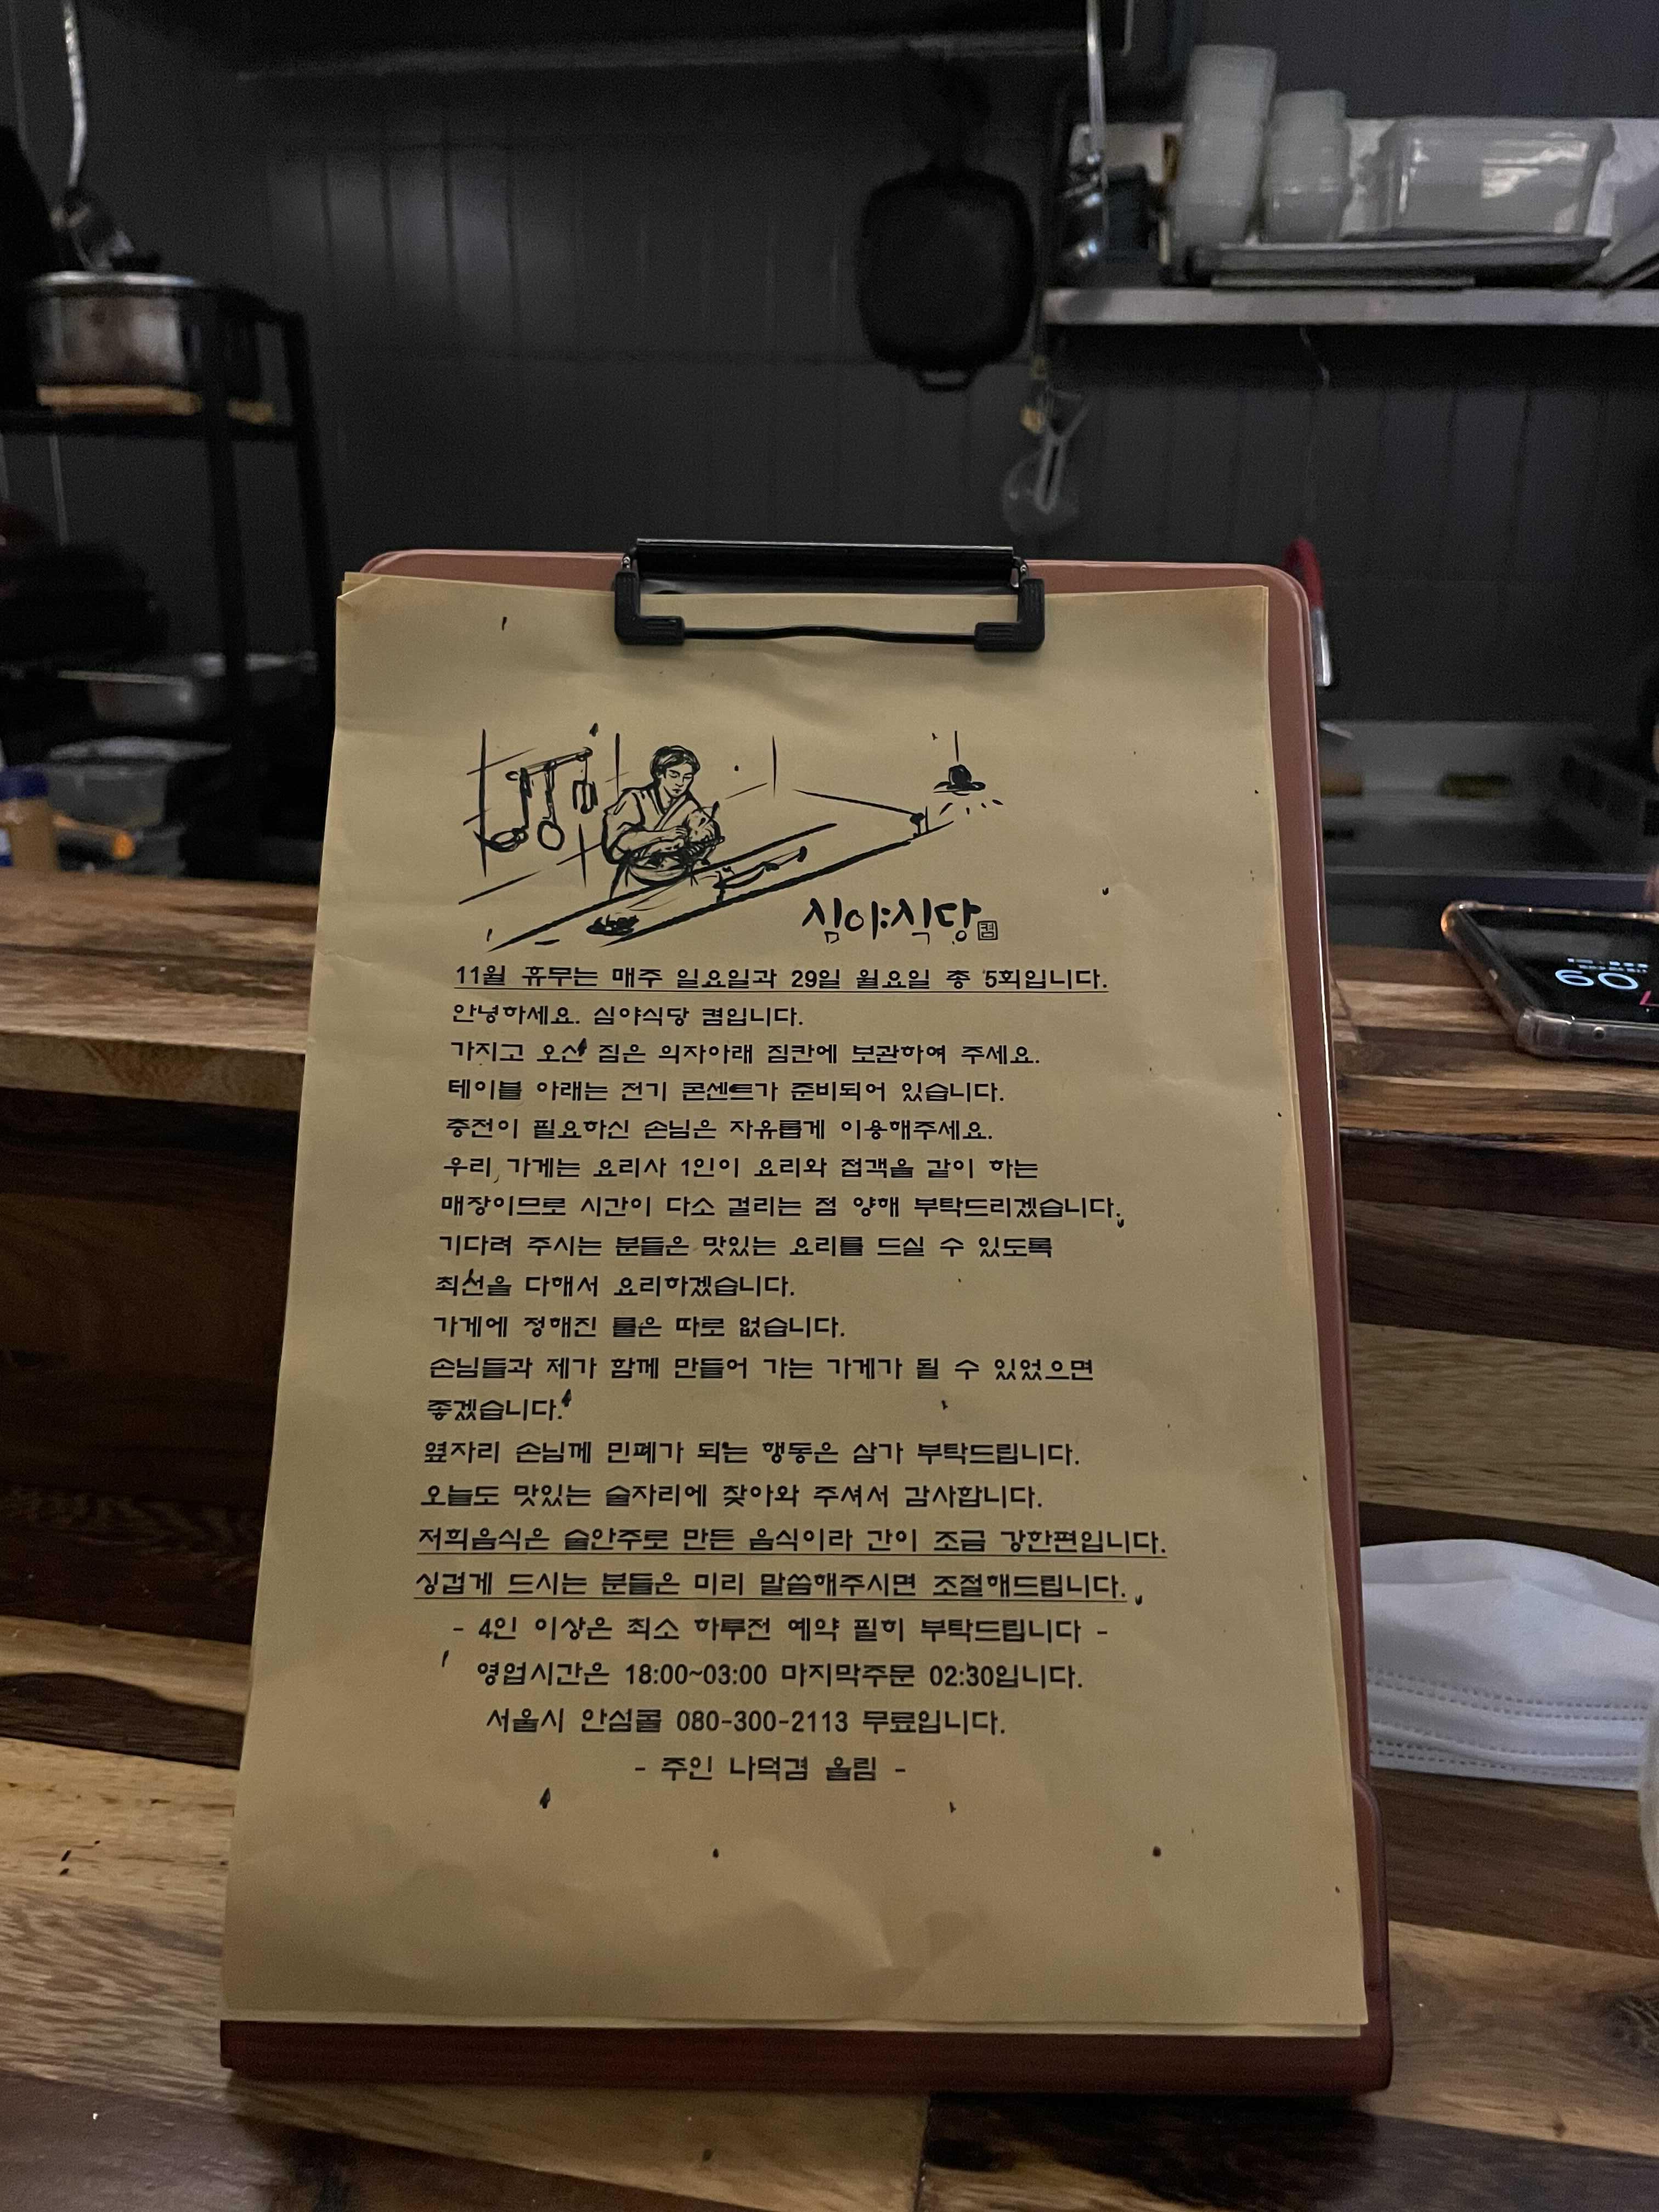 심야식당 켬
11월 휴무는 매주 일요일과 29일 월요일 총 5회입니다.
안녕하세요. 심야식당 켬입니다.
가지고 오신 짐은 의자아래 짐칸에 보관하여 주세요.
테이블 아래는 전기 콘센트가 준비되어 있습니다.
충전이 필요하신 손님은 자유롭게 이용해주세요.
우리 가게는 요리사 1인이 요리와 접객을 같이 하는
매장이므로 시간이 다소 걸리는 점 양해 부탁드리겠습니다.
기다려 주시는 분들은 맛있는 요리를 드실 수 있도록
최선을 다해서 요리하겠습니다.
가게에 정해진 룰은 따로 없습니다.
손님들과 제가 함께 만들어 가는 가게가 될 수 있었으면
좋겠습니다.
옆자리 손님께 민폐가 되는 행동은 삼가 부탁드립니다.
오늘도 맛있는 술자리에 찾아와 주셔서 감사합니다.
저희음식은 술안주로 만든 음식이라 간이 조금 강한편입니다.
싱겁게 드시는 분들은 미리 말씀해주시면 조절해드립니다.
- 4인 이상은 최소 하루전 예약 필히 부탁드립니다 -
영업시간은 18:00~03:00 마지막주문 02:30입니다.
서울시 안심콜 080-300-2113 무료입니다.
- 주인 나덕겸 올림 -
09